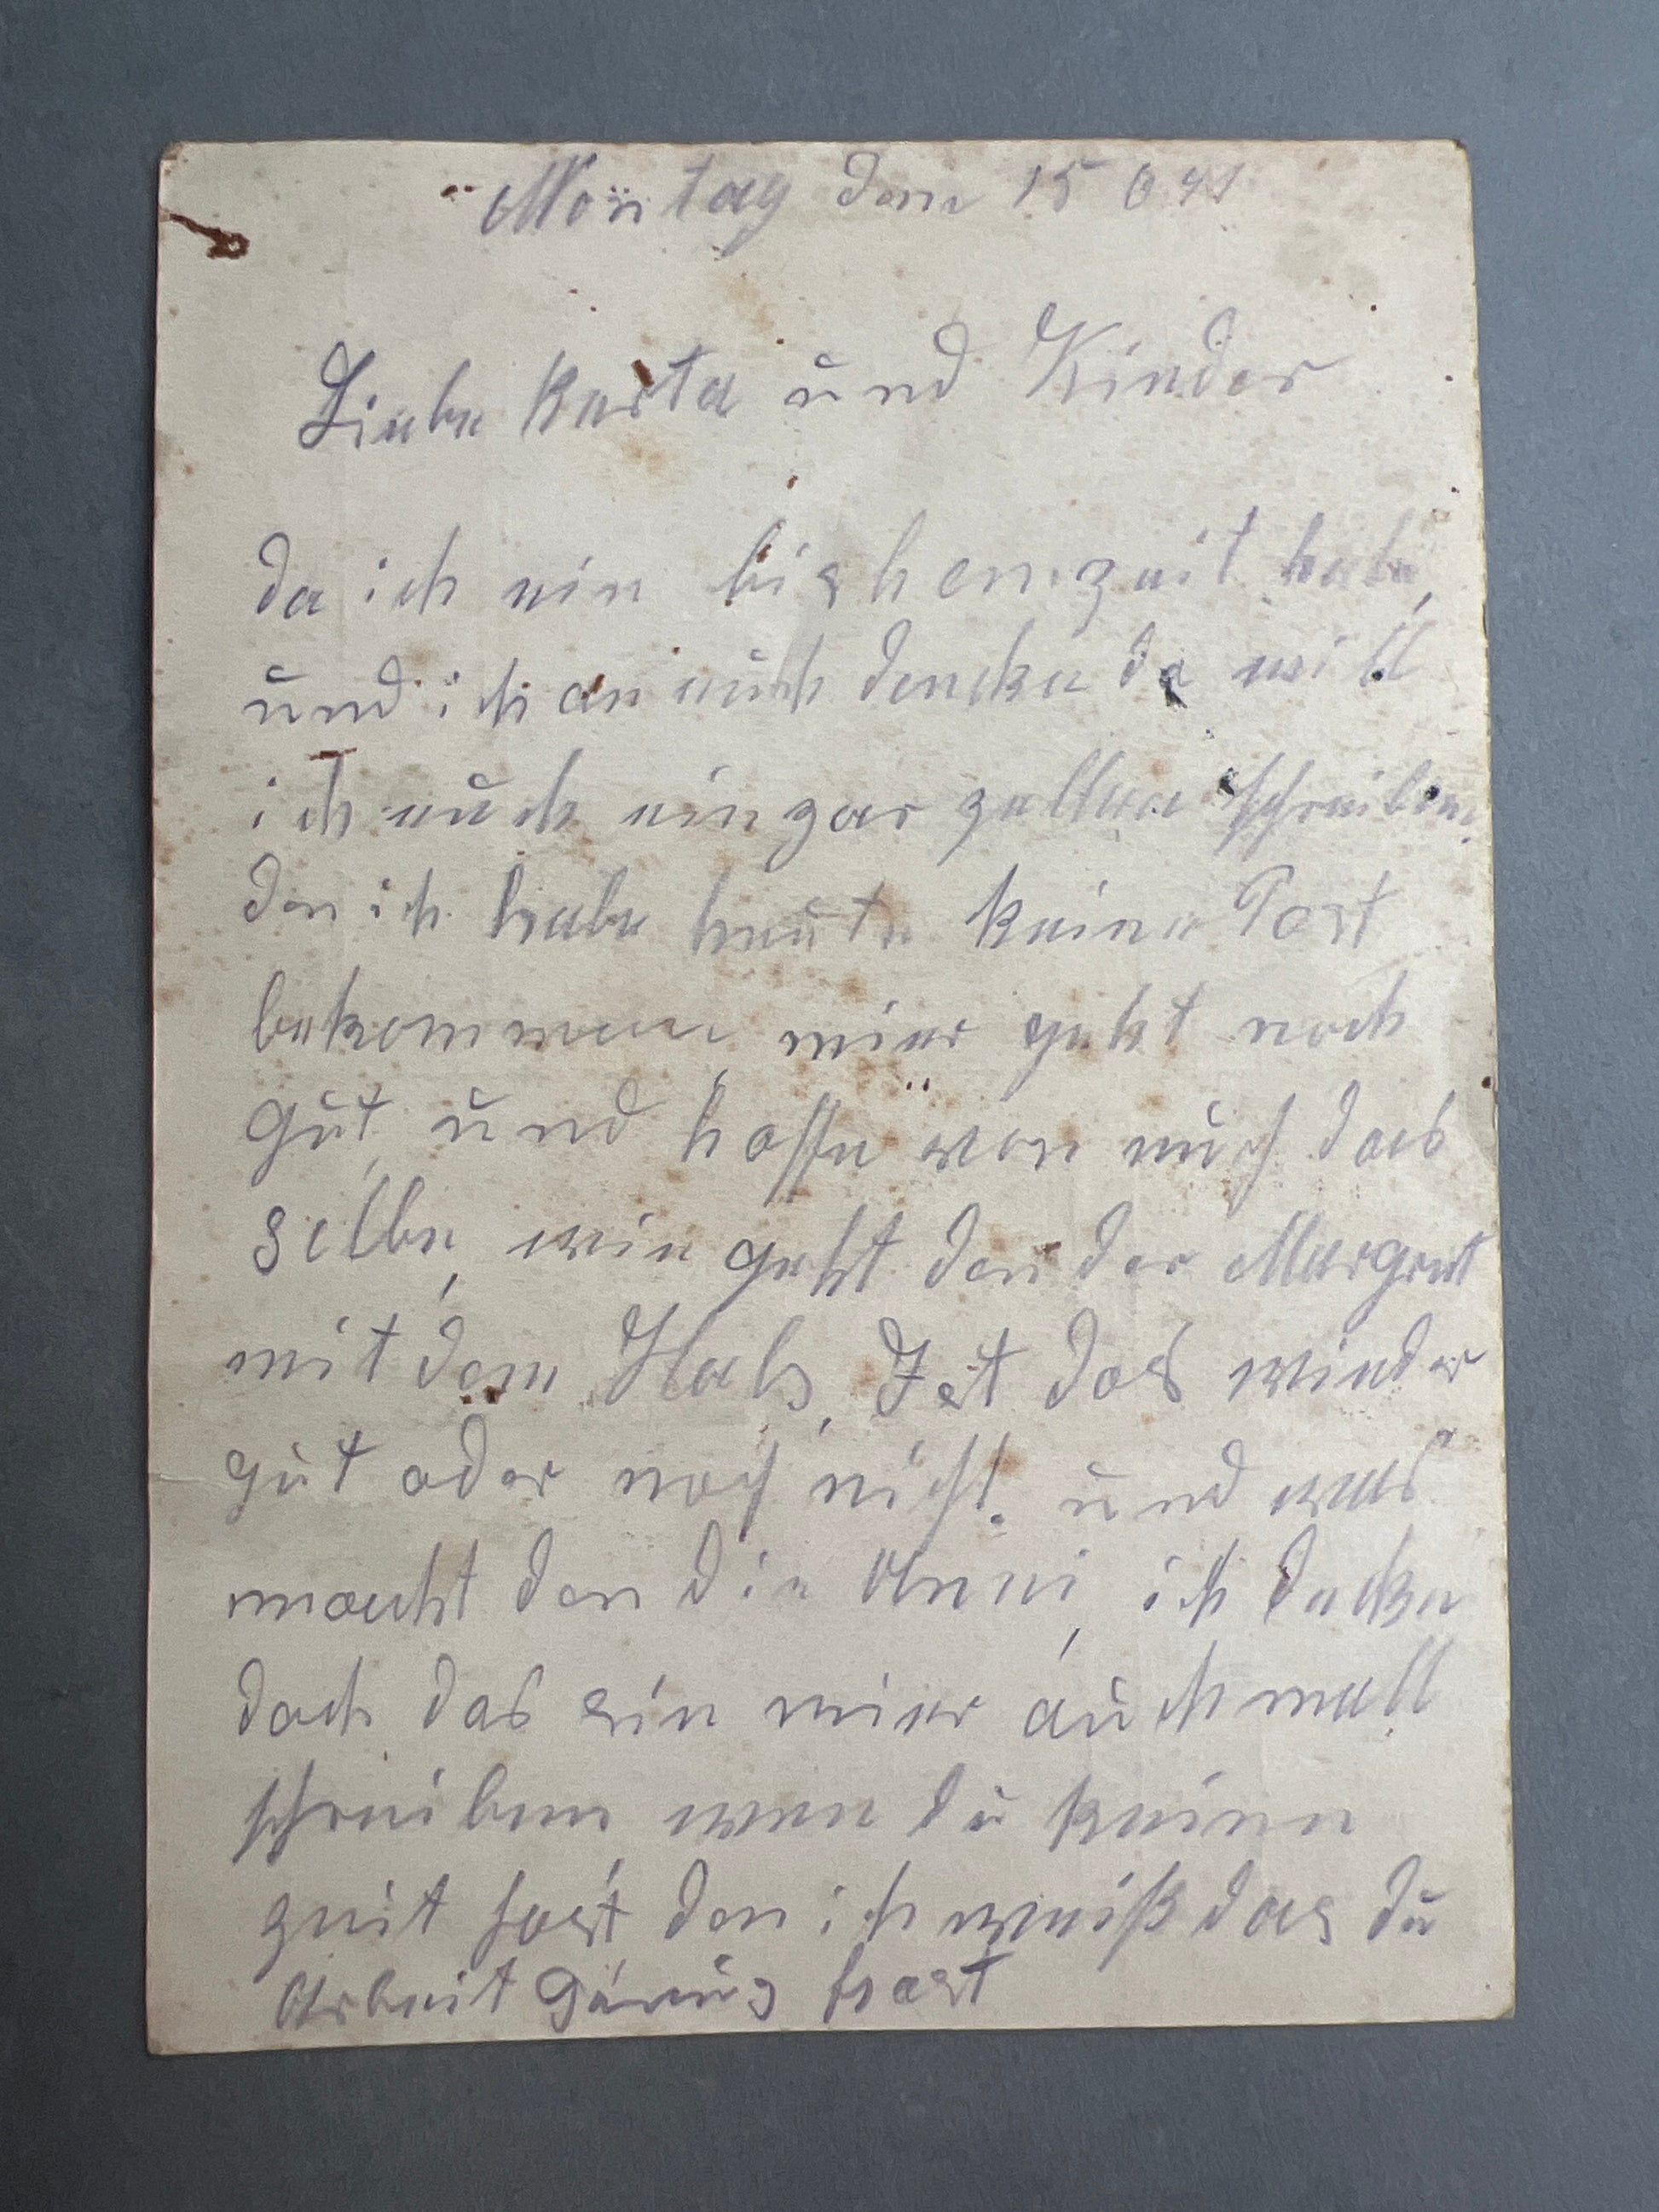 Montag den 15 6 41
Liebe Kerta und Kinder
da ich ein bishen zeit habe,
und ich an euch dencke da will
ich euch ein par zellen schreiben.
den ich habe heute keine Post
bekommen, mier geht noch
gut, und hoffe von euch das
selbe, wie geht den der Margret
mit dem Hals, Ist das wieder
gut oder noch nicht. und was
macht den die Anni, ich decke
doch das sie mier auch mall
schreiben wen du keine
zeit hast, den ich weiß das du
Arbeit genug hast